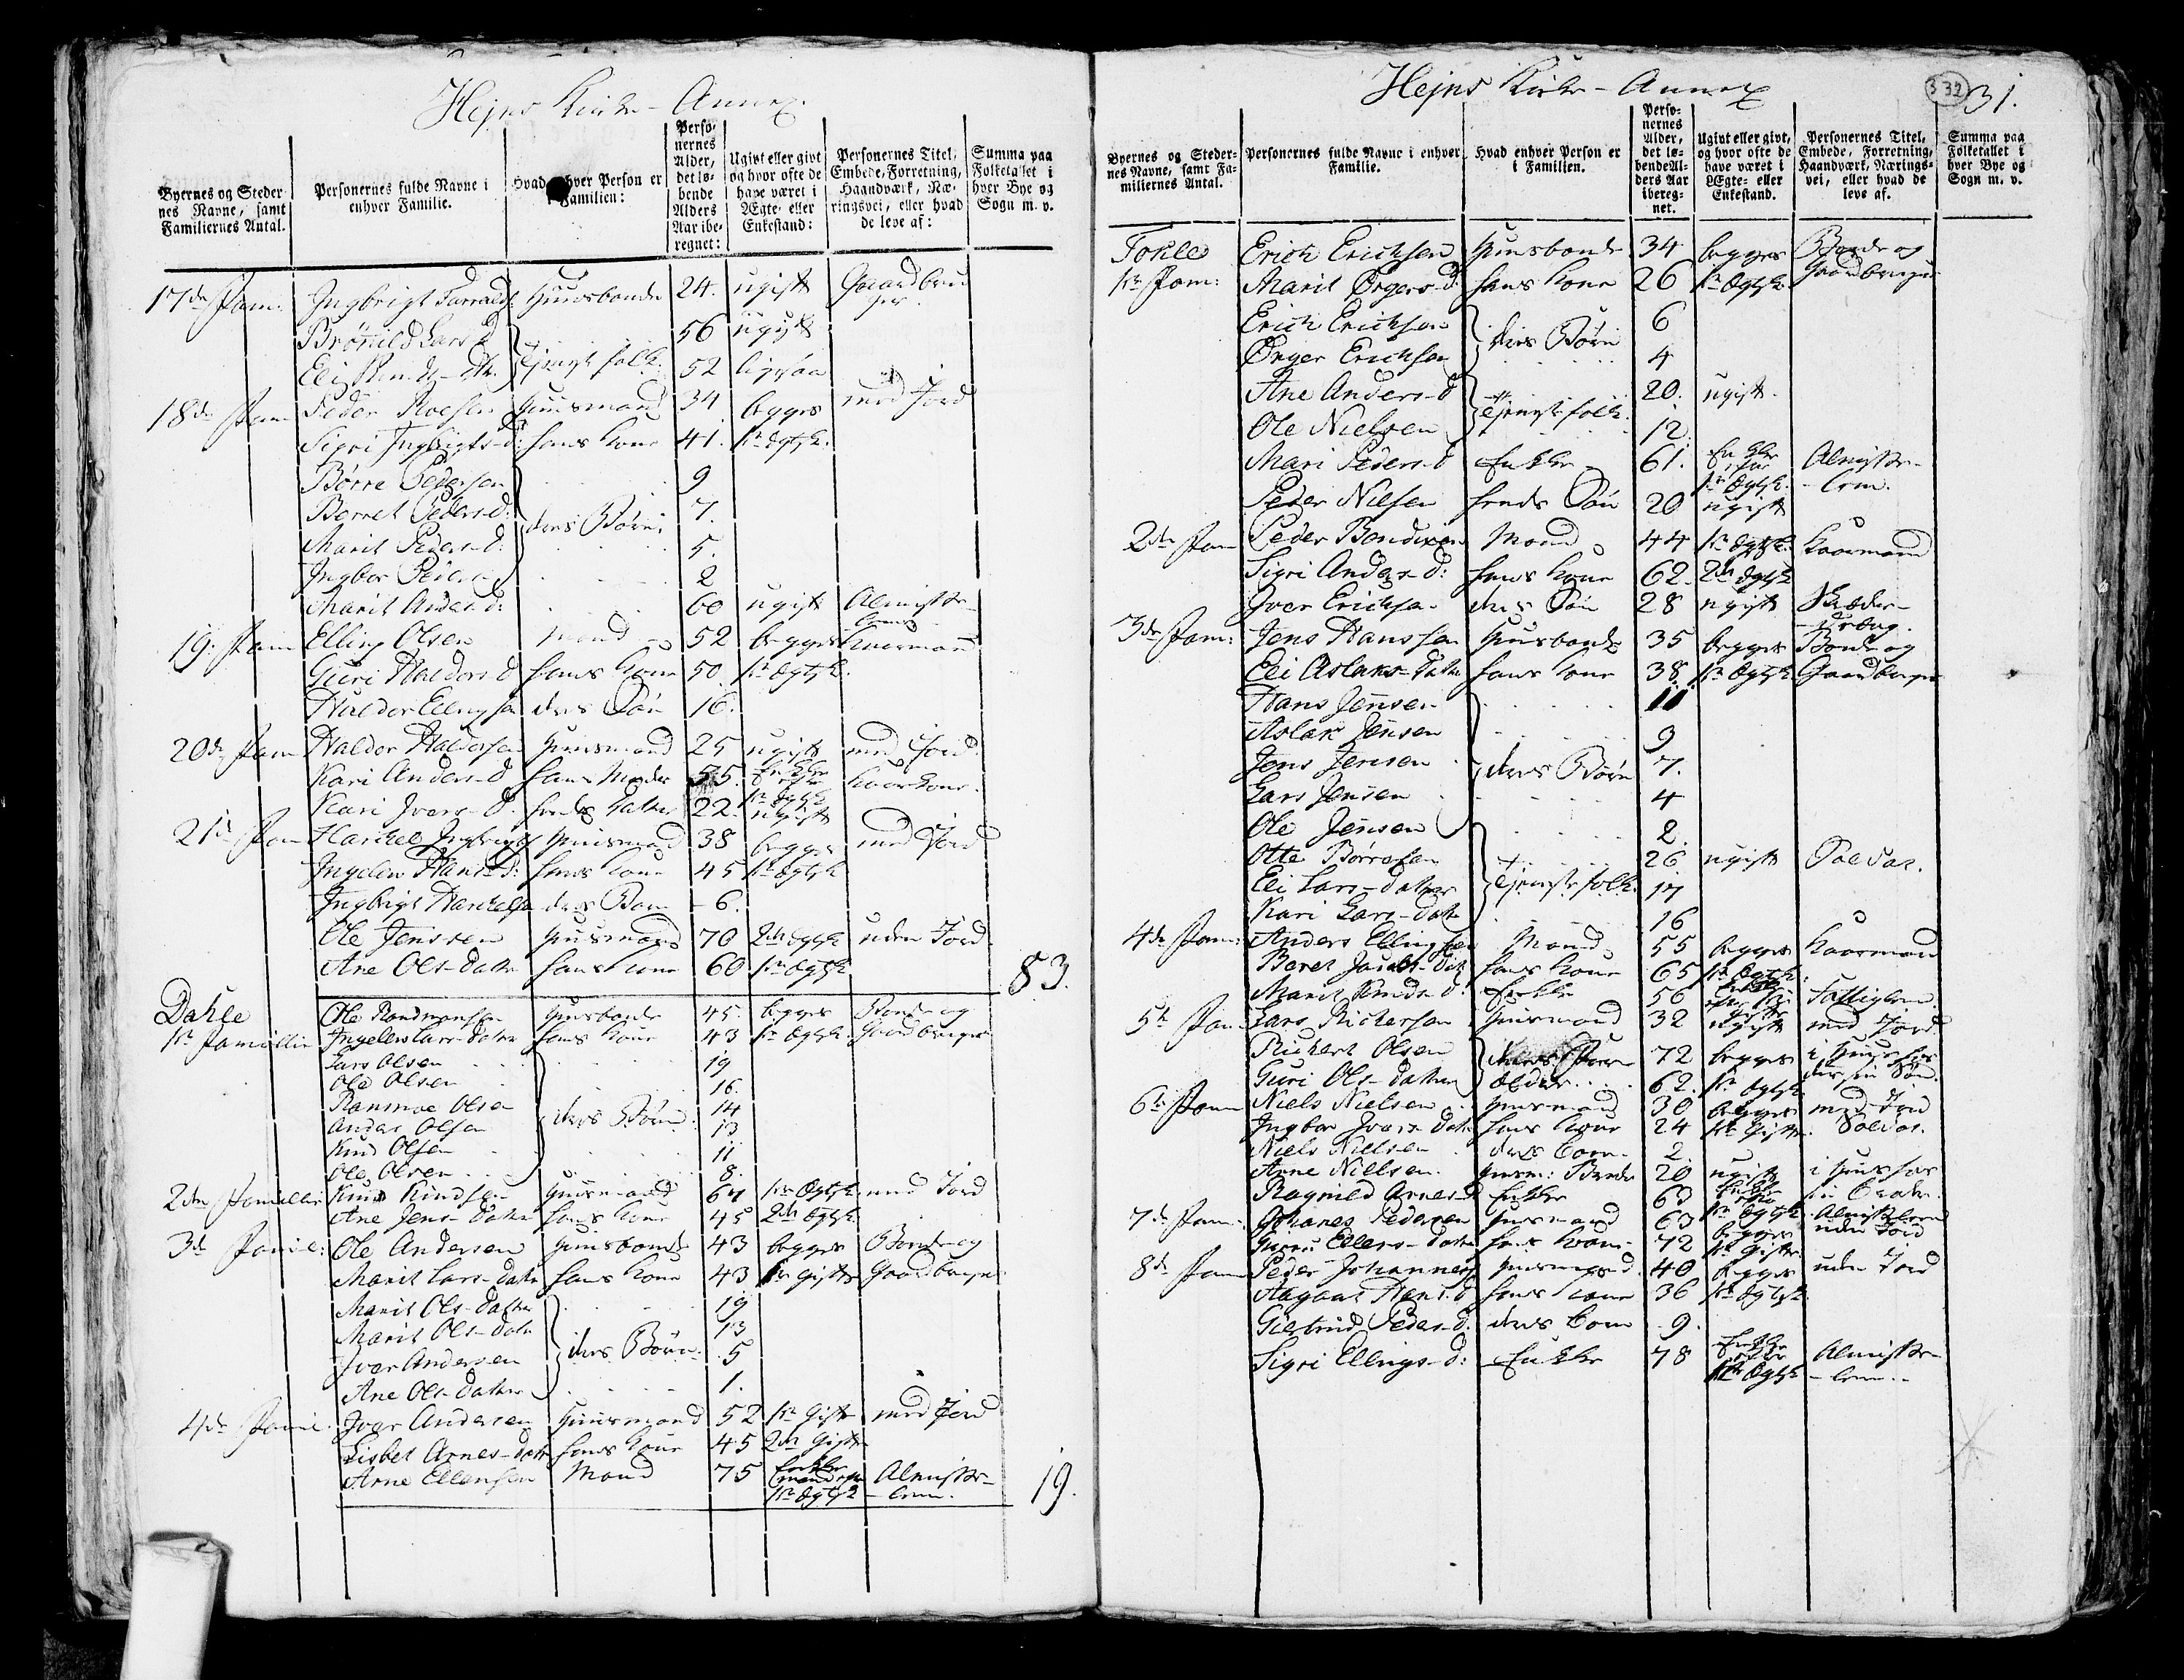 Hejns Kirke-Annex.
Byernes og Steder nes Navne, samt Familiernes Antal.
Personernes fulde Navne i enhver Familie.
Hvad enhver Person er i Familien:
Perso-nernes Alder, det lø-bende Alders Aar ibe-regnet:
Ugivt eller givt og hvor ofte de have været i Ægte- eller Enkestand:
Personernes Titel, Embede, Forretning, Haandværk, Næ-ringsvei, eller hvad de leve af:
Summa paa Folketallet i hver Bye og Sogn m. v.
17de Fam. Ingbrigt Huusbonde 24. ugift Gaardbru
ger
Brønild Lars D 56 ugift
Eli tjenistfolk. 52 ligesaa
18de Fam Peder Roesen Huusmand 34 begges med Jord
Sigri Ingbrigts-d: hans Kone 41. 1ste Ægtsk.
Børre Pedersen 9
Berret Peders-d: deres Børn 7.
Marit Peders-d: 5.
Ingbor Peders-d 2
Marit Anders-d: 60 ugift Almisse-
lem
19. Fam Elling Olsen Mand 52 begges Kaarmand
Guri Haldors d hans Kone 50. 1ste Ægtsk.
Haldor Ellingsen deres Søn 16.
20de Fam Haldor Haldorsen Huusmand 25 ugift med Jord
Kari Anders-d hans Moder 55. Enke Kaarkone.
1ste Ægtsk
Kari Ivers-d. hendes Datter 22. ugift
21de Fam Harkel Ingbrigts Huusmand 38 begges med Jord
Ingelev Hans-d: hans Kone 45 1ste Ægtsk
Ingbrigt Harkelsen deres Barn 6.
Ole Jenssen Huusmand 70 2den Ægtsk uden Jord
Ane Ols-Datter hans Kone 60 1ste Ægtsk
83.
Dahle Ole Randmonsen Huusbonde 45. begges Bonde og
1ste Familie Ingelev Lars-Datter hans Kone 43 1ste Ægtsk. Gaardbruger
Lars Olsen 19
Ole Olsen 16.
Ranmoe Olsen deres Børn 14
Anders Olsen 13
Knud Olsen 11
Ole Olsen 8.
2den Familie Knud Kindsen Huusmand 64 1ste Ægtsk. med Jord
Ane Jens-Datter hans Kone 45 2den Ægtsk.
3de Famil: Ole Andersen Huusbonde 43 begges Bonde og
Marit Lars-Datter hans Kone 43 1ste Gifte Gaardbruger
Marit Ols-Datter 19
Marit Ols-Datter deres Børn 13
Iver Andersen 5
Ane Ols-Datter 1.
4de Famil. Iver Andersen Huusmand 52 1ste Gifte med Jord
Lisbet Arnes-Datter hans Kone 45 2den Gifte
Arne Ellensen Mand 75 Enke Almisse-
mand 1ste Ægtsk lem.
19.
Hejns Kirke-Annex
332 31.
Byernes og Steder-nes Navne, samt Fa-miliernes Antal.
Personernes fulde Navne i enhver Familie.
Hvad enhver Person er i Familien.
Perso-nernes Alder, det lø-bende Al-ders Aar ibereg-net.
Ugivt eller givt, og hvor ofte de have været i Ægte- eller Enkestand.
Personernes Titel, Embede, Forretning, Haandværk, Nærings-vei, eller hvad de leve af.
Summa paa Folketallet i hver Bye og Sogn m. v.
Fokles Erich Erichsen Huusbonde 34 begges Bonde og
1ste Fam: Marit Ørgers-d: hans Kone 26 1ste Ægtsk. Gaardbruger
Erich Erichsen deres Børn 6
Ørger Erichsen 4
Ane Anders-d tjenistfolk. 20. ugift.
Ole Nielsen 12.
Mari Peders-d Enke 61. Enke Almisse-
1ste Ægtsk. -lem.
Peder Nilsen hendes Søn 20 ugift
2den Fam Peder Bendixen Mand 44 1ste Ægtsk. Kaarmand
Sigri Anders-d: hans Kone 62. 2den Ægtsk
Iver Erichsen deres Søn 28 ugift Skræder-
3de Fam: Jens Hanssen Huusbonde 35 begges Bonde og
Eli Aslaks-Datter hans Kone 38. 1ste Ægtsk Gaardbruger
Hans Jensen 11
Aslak Jensen 9
Jens Jensen deres Børn 7.
Lars Jensen 4
Ole Jensen 2.
Otte Børresen 26. ugift Soldat.
Eli Lars-Datter tjenistfolk. 17
Kari Lars-Datter 16
4de Fam: Anders Ellingsen Mand 55 begges Kaarmand
Beret Jacobs-Dtr hans Kone 65 1ste Ægtsk.
Marit Knuds-d: Enke 56 Fattiglem.
5te Fam. Lars Richersen Huusmand 32 ugift med Jord
Richert Olsen 72 begges i Huus hos
Guri Ols-Datter 62. 1ste Ægtsk. sin Søn.
6te Fam Niels Nielsen Huusmand 30 begges med Jord
Ingbor Ivers-Datter hans Kone 24 1ste Gifte. Soldat.
Niels Nielsen deres Barn 2.
Arne Nielsen. 20 ugift i Huus hos
Ragnild Arnes-d Enke 63 Enke
1ste Ægtsk. Almisselem
7de Fam: Johanes Pedersen Huusmand 63 begges uden Jord
Ellens-Datter hans Kone 72 1ste Gifte
8de Fam Peder Johannesen Huusmand 40 begges uden Jord
Aagaat Hans-d hans Kone 36 1ste Ægtsk.
Giertrud Peders-d. deres Barn 9.
Sigri Ellings-d: Enke 78 Enke Almisse-
Ægtsk -lem.